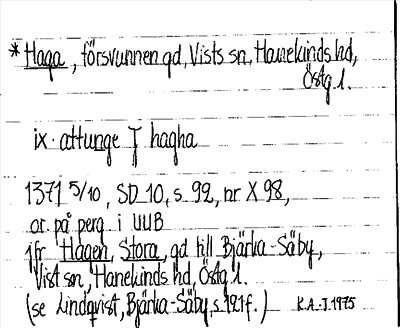 * Haga, försvunnen gd, Vists sn, Hanekinds hd,
Östg l.
ix. attunge J hagha
1371 5/10, SD 10, s 92, nr X 98,
or på perg i UUB
jfr Hagen, Stora, gd till Bjärka-Säby,
Vist sn, Hanekinds hd, Östg l.
(se Lindqvist, Bjärka-Säby, s 121 f.) K.A.-J. 1975